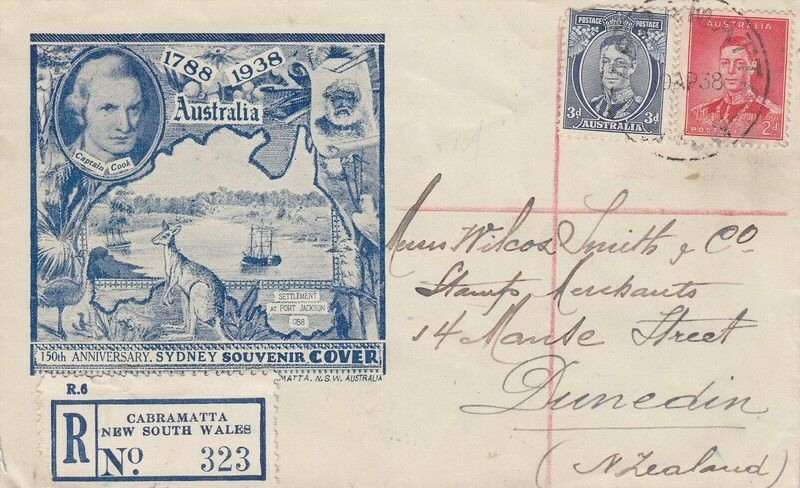 1788 1938
Australia
Captain Cook
SETTLEMENT
AT PORT JACKSON
1788
150th ANNIVERSARY. SYDNEY SOUVENIR COVER
MATTA. N.S.W. AUSTRALIA
POSTAGE POSTAGE
3d 3d
AUSTRALIA
AUSTRALIA
2d
AP 38
Wilcox Smith & Co
Stamp Merchants
14 Manse Street
Dunedin
(N Zealand)
R.6
R
CABRAMATTA
NEW SOUTH WALES
No. 323